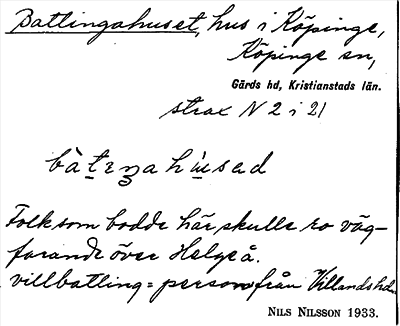 Batlingahuset, hus i Köpinge,
Köpinge sn,
Gärds hd, Kristianstads län.
strax N 2 i 21
Folk som bodde här skulle ro väg-
farande över Helgeå.
villbatling = person från Villands hd.
NILS NILSSON 1933.